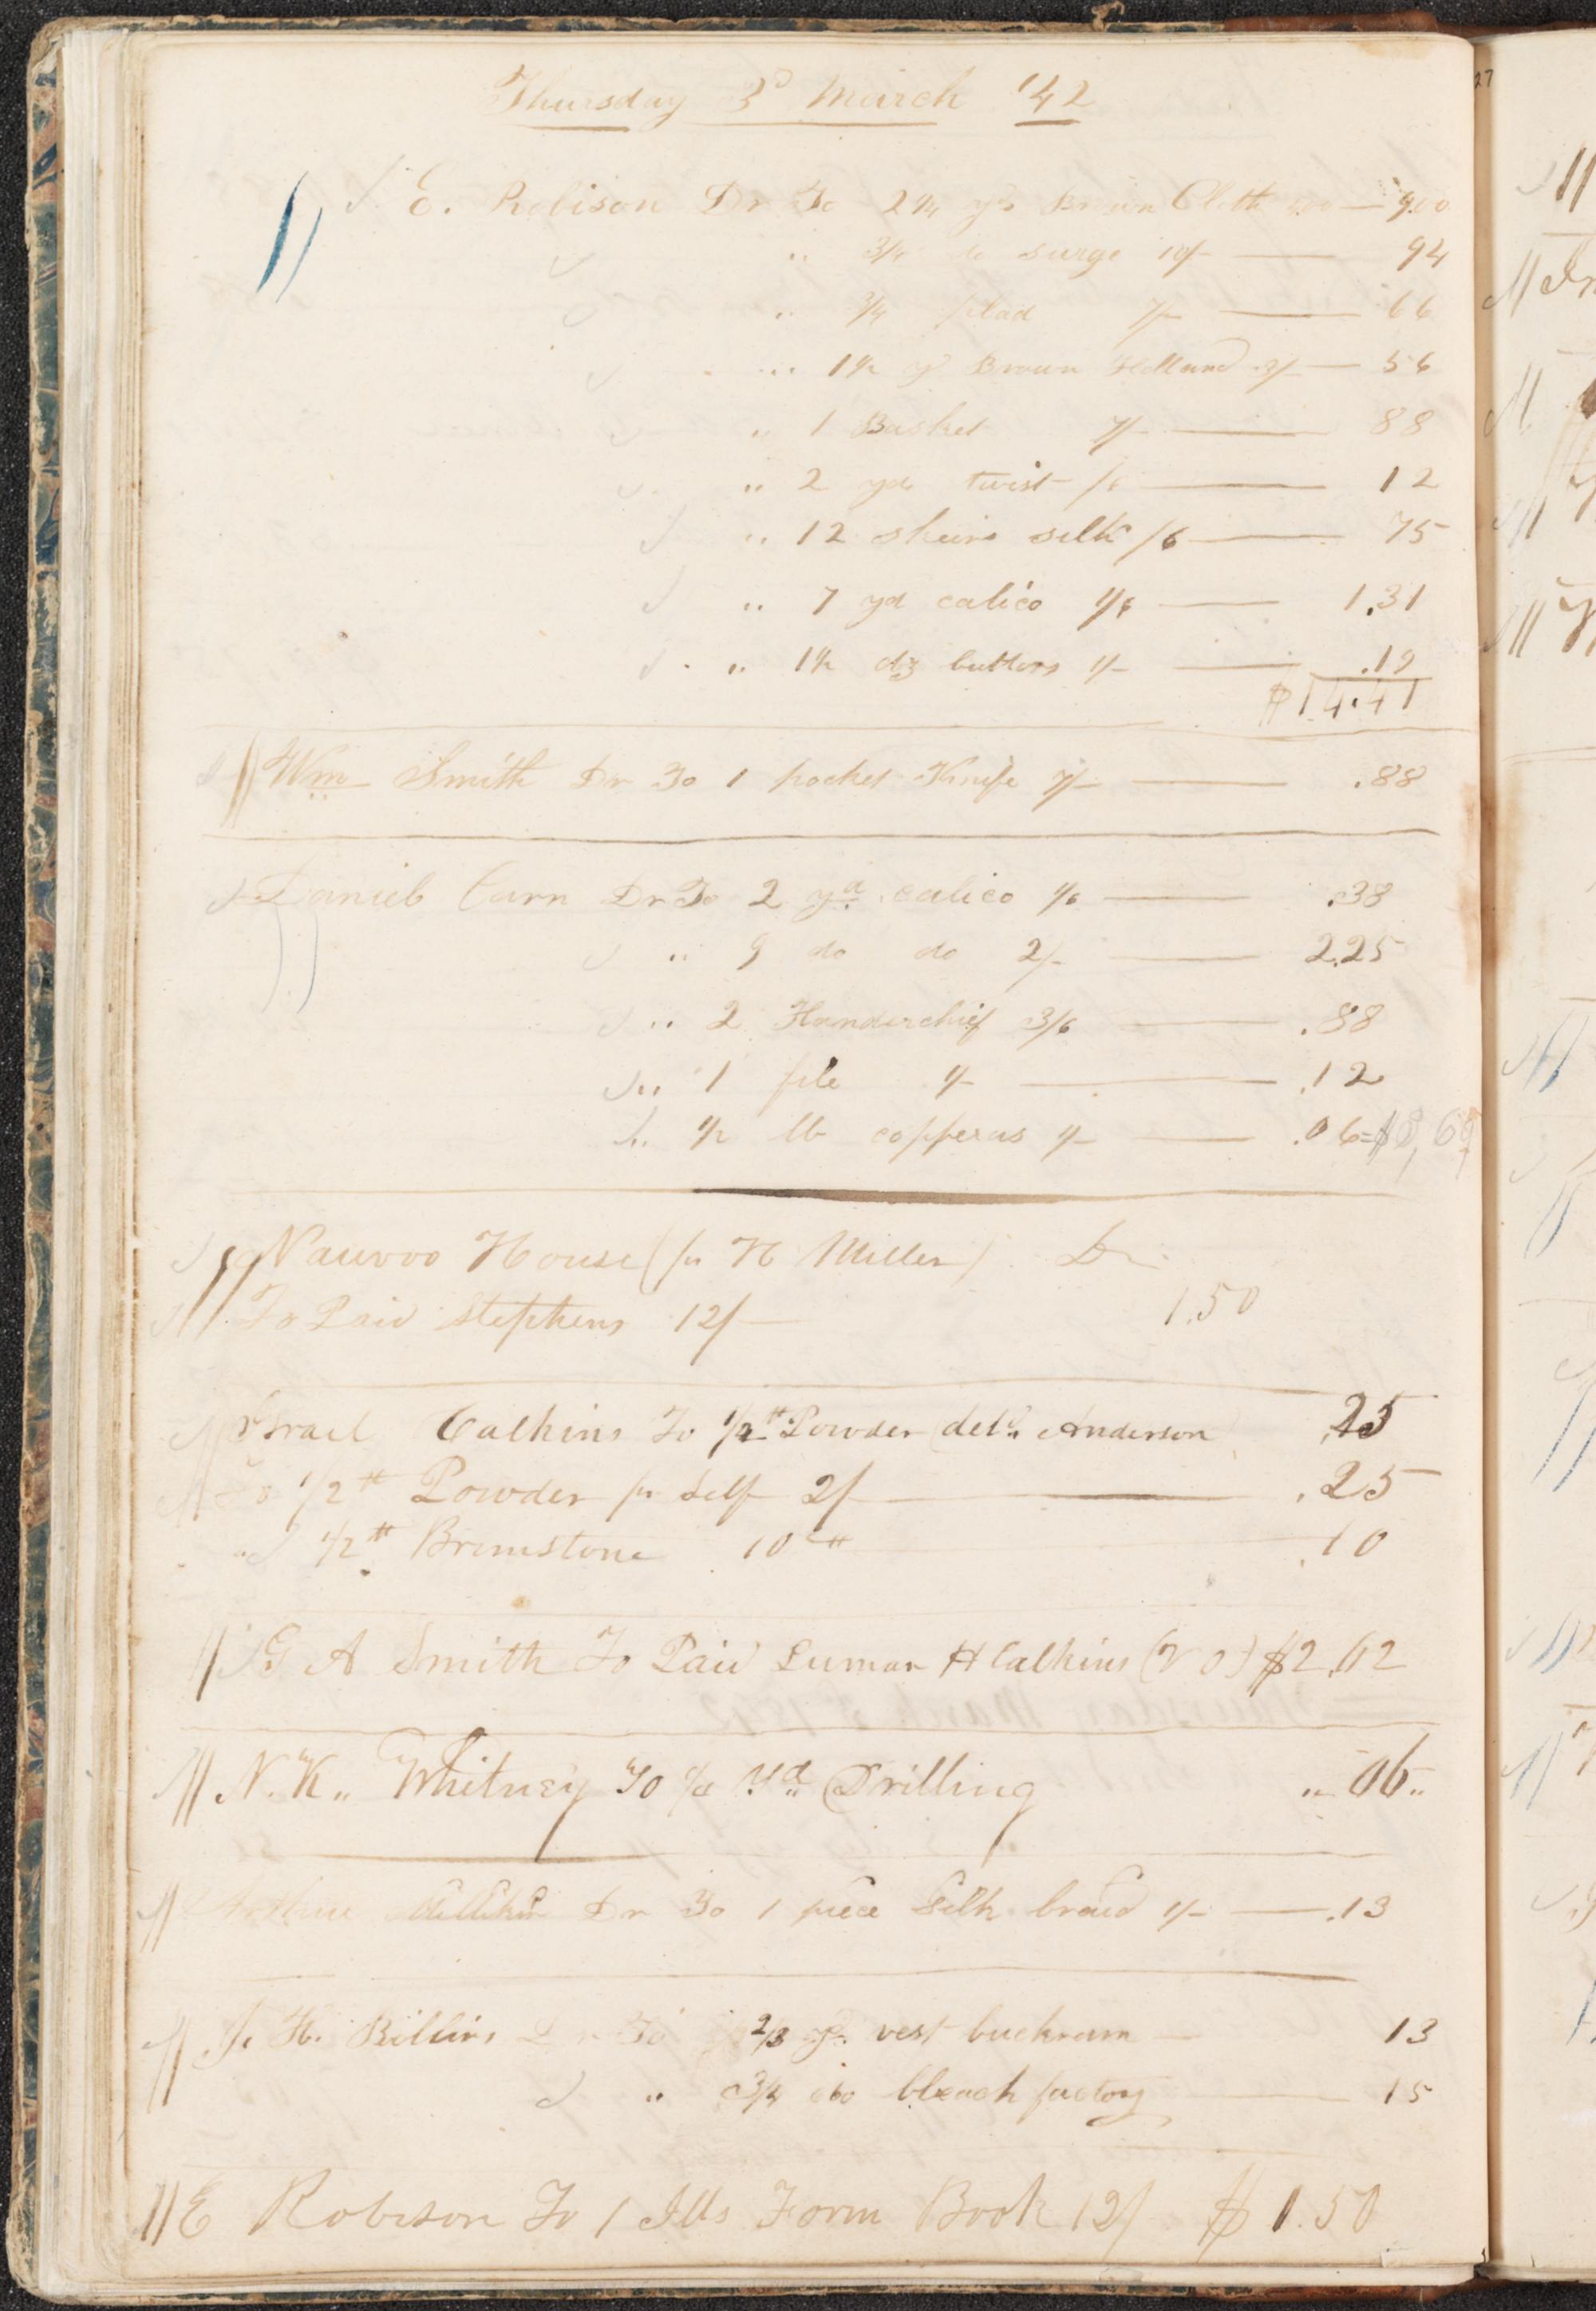 Thursday 3d March '42
E. Robison Dr To 2 1/4 yds Brown Cloth 4.00 — 9.00
" 3/4 do surge 10/- — 94
" 3/4 plad 7/- — 66
" 1 1/2 yd Brown Holland 3/- — 56
" 1 Basket 7/- — 88
" 2 yds twist /6 — 12
" 12 skeins silk /6 — 75
" 7 yd calico 1/6 — 1.31
" 1 1/2 dz buttons 1/- — .19
$14.41
Wm Smith Dr To 1 pocket Knife 7/- — .88
Daniel Carn Dr To 2 yd calico 1/6 — .38
" 9 do do 2/- — 2.25
" 2 Handerchief 3/6 — .88
" 1 file 1/- — .12
" 1/2 lb copperas 1/- — .06 = $3,69
Nauvoo House (pr H Miller) Dr
To Paid Stephens 12/- 1.50
Israel Calkins To 1/2 # Powder deld. Anderson .25
To 1/2 # Powder pr Self 2/ — .25
" 1/2 # Brimstone 10 — .10
G A Smith To Paid Luman H Calkins (V O) $2.62
N. K. Whitney To 1/4 Yd Drilling " 06 "
Dr To 1 piece Silk braid 1/- — .13
T. H. Billins Dr To 2/3 yd vest buckram — 13
" 3/4 do bleach factory — 15
E Robison To 1 Ills Form Book 12/ $1.50
27